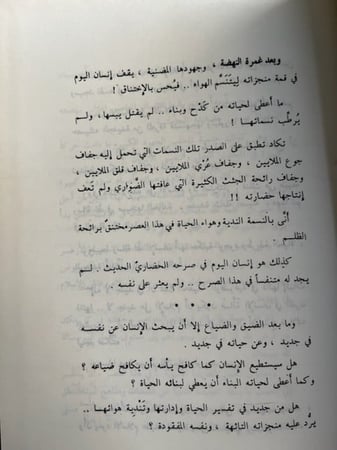 وبعد غمرة النهضة ، وجهودها المضنية ، يقف إنسان اليوم
في قمة منجزاته لِيتَنَسَّم الهواء .. فيُحس بالإختناق !
ما أعطى لحياته من كَدْح وبناء .. لم يقتل يبسها، ولـم
يُرطِّب نسماتهـا !
تكاد تطبق على الصدر تلك النسمات التي تحمل إليه جفاف
جوع الملايين ، وجفاف عُرْي الملايين ، وجفاف قلق الملايين ،
وجفاف رائحة الجثث الكثيرة التي عافتها الضَّواري ولم تَعف
إنتاجها حضارته !!
أنَّى بالنسمة الندية وهواء الحياة في هذا العصر مختنقٌ برائحة
الظلـم .
كذلك هو إنسان اليوم في صرحه الحضاريّ الحديث .. لـم
يجد له متنفساً في هذا الصرح .. ولم يعثر على نفسه .
• • •
وما بعد الضيق والضياع إلا أن يبحث الإنسان عن نفسه
في جديد ، وعن حياته في جديد .
هل سيستطيع الإنسان كما كافح يأسه أن يكافح ضياعه ؟
وكما أعطى لحياته البناء أن يعطي لبنائه الحياة ؟
هل من جديد في تفسير الحياة وإدارتها وتَنْدِية هوائهـا ..
يرُد عليه منجزاته التائهة ، ونفسه المفقودة ؟